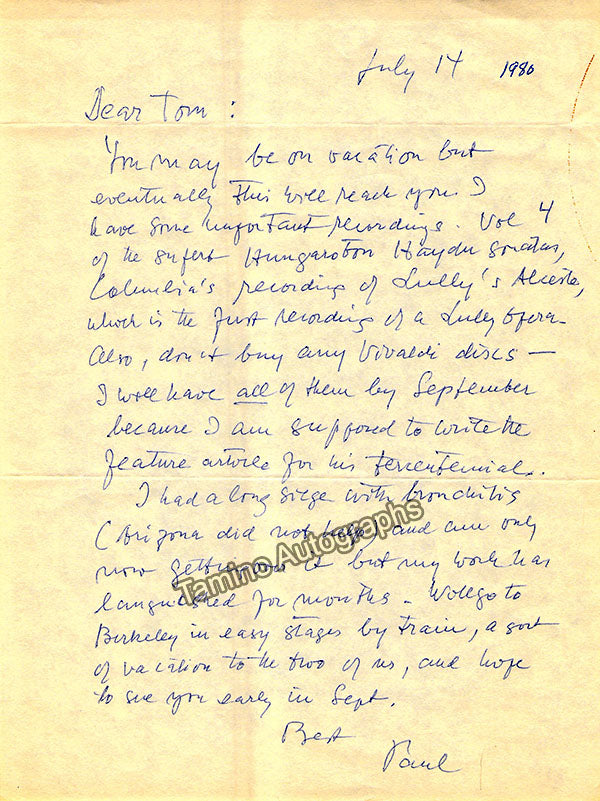 July 14 1980
Dear Tom :
You may be on vacation but
eventually this will reach you. I
have some important recordings. Vol 4
of the superb Hungaroton Haydn sonatas,
Columbia's recording of Lully's Alceste,
which is the first recording of a Lully opera.
Also, don't buy any Vivaldi discs —
I will have all of them by September
because I am supposed to write the
feature article for his tercentennial.
I had a long siege with bronchitis
(Arizona did not help) and am only
now getting over it but my work has
languished for months. Will go to
Berkeley in easy stages by train, a sort
of vacation to the two of us, and hope
to see you early in Sept.
Best
Paul
Tamino Autographs